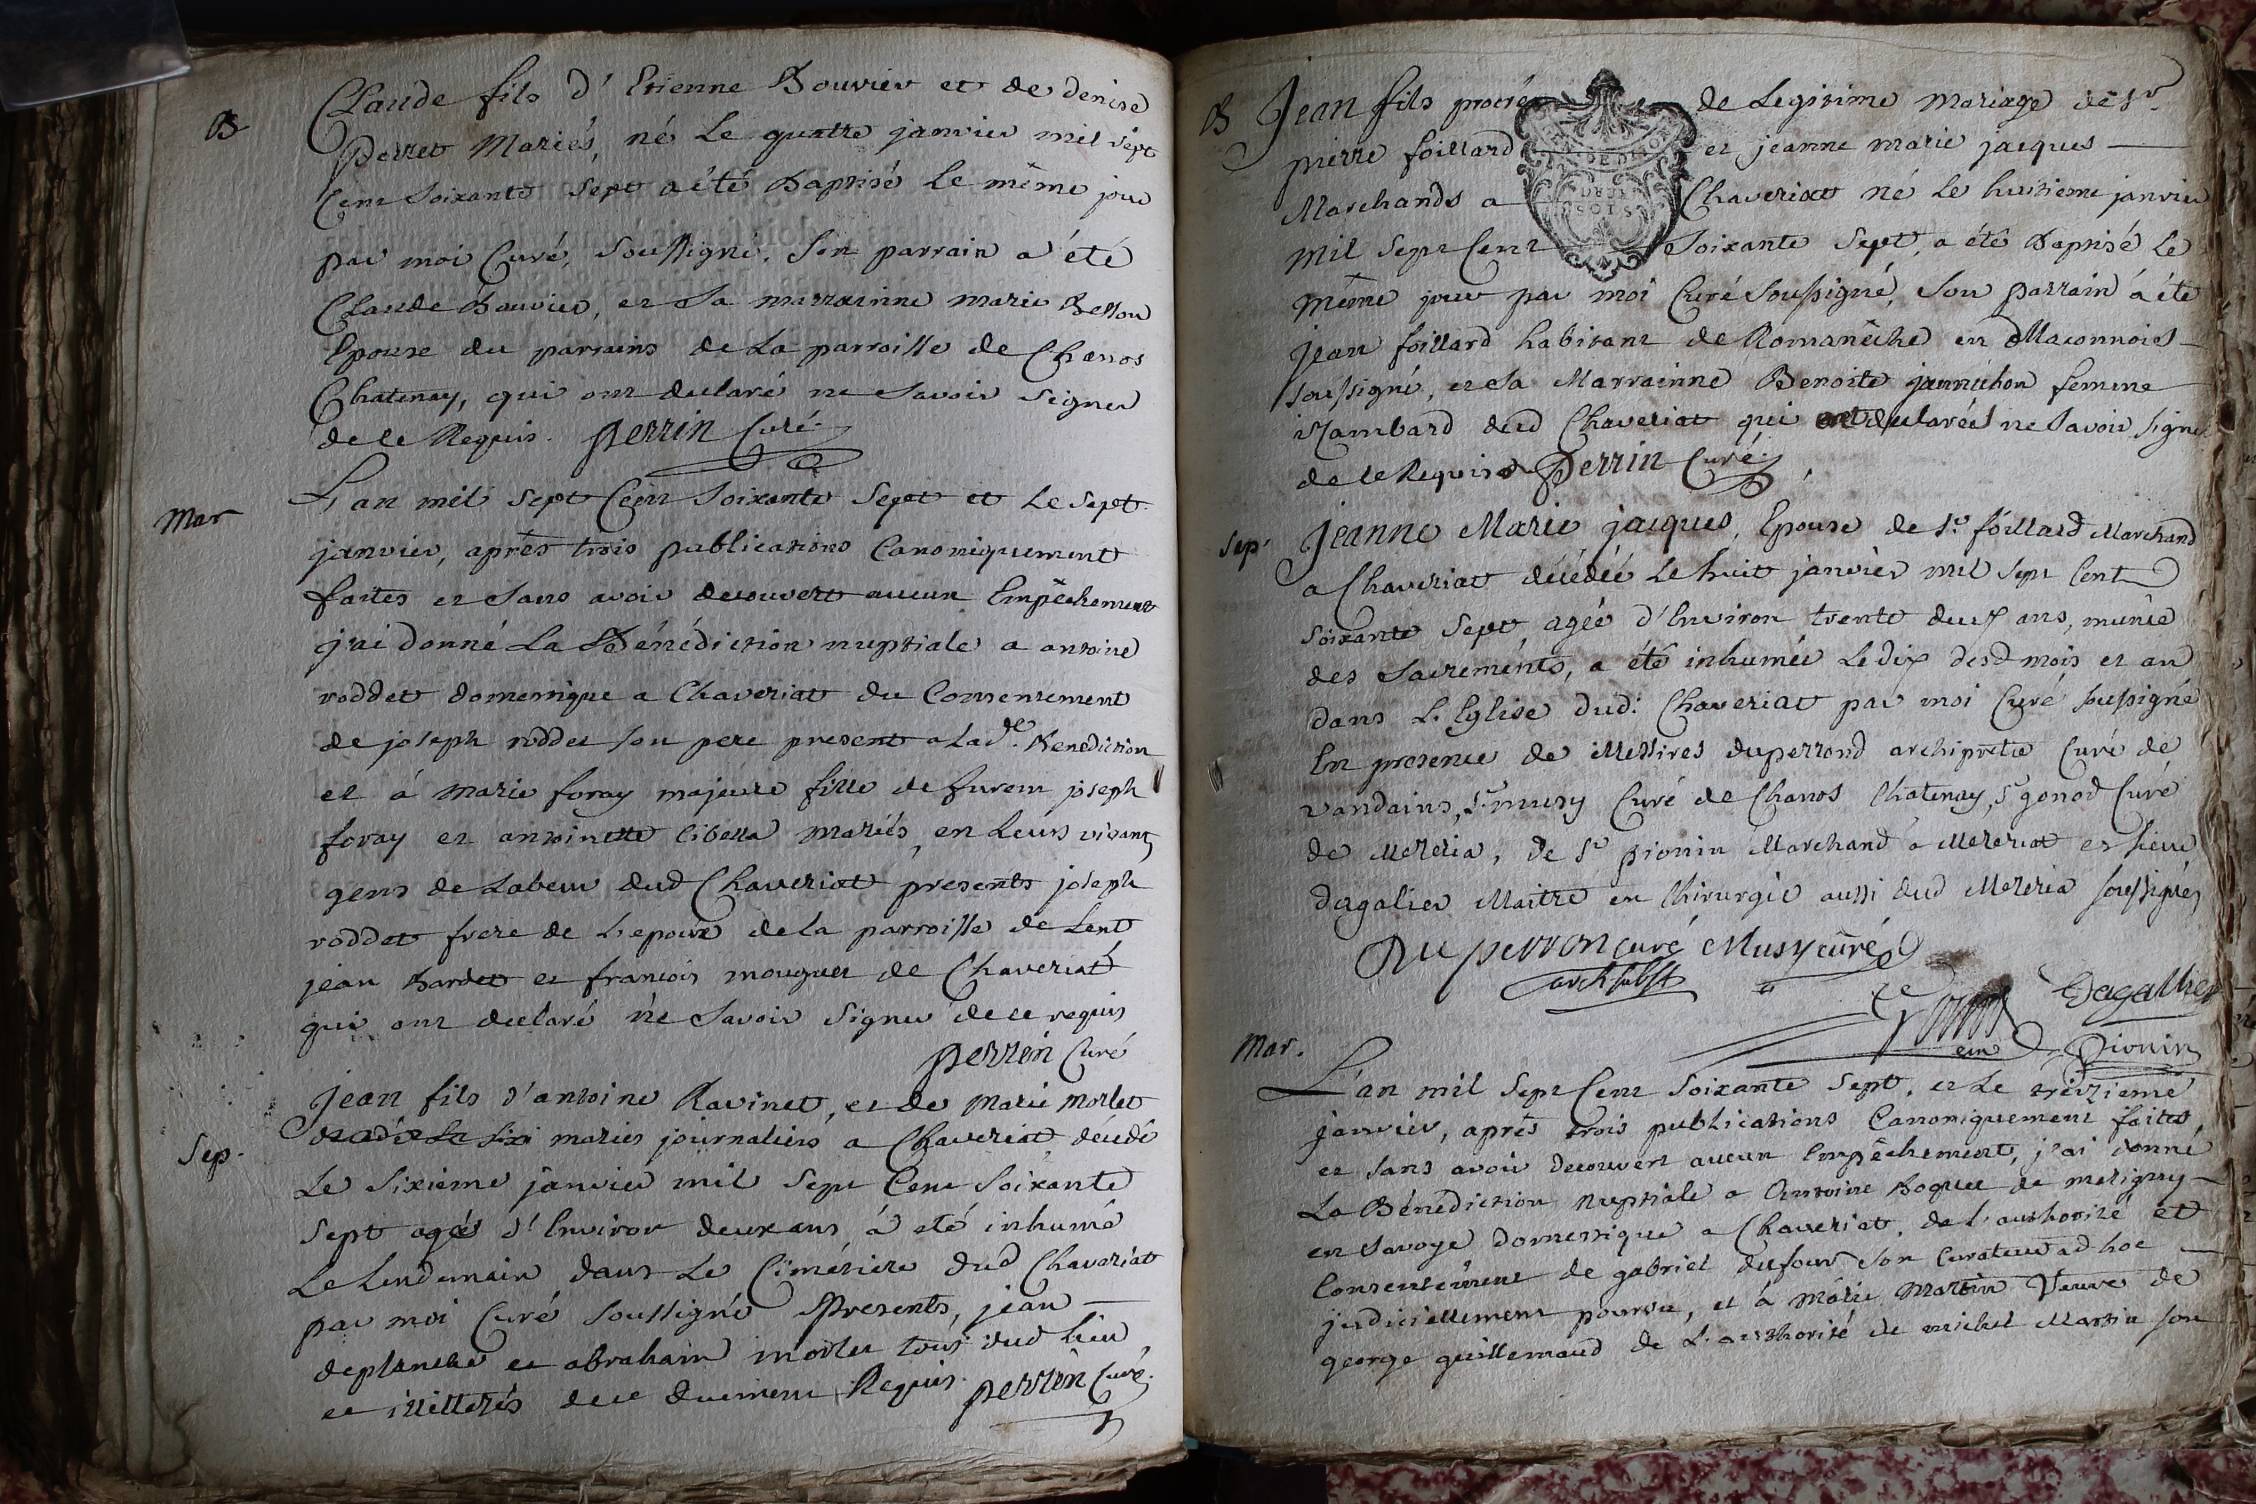 B
Claude fils d'Etienne Bouvier et de denise
Perret Mariés, né le quatre janvier mil sept
Cent Soixante Sept a été Baptisé le même jour
par moi Curé, Soussigné, Son parrain a été
Claude Bouvier, et Sa marrainne marie Besson
Epouse du parrains de La parroisse de Chanos
Chatenay, qui ont declaré ne Savoir Signer
de ce Requis. perrin Curé.
Mar
L'an mil Sept Cent Soixante Sept et Le Sept
janvier, après trois publications Canoniquement
faites et Sans avoir decouvert aucun Empêchement
j'ai donné La Bénédiction nuptiale a antoine
roddet domestique a Chaveriat du Consentement
de joseph roddet son pere present a lade. Benediction
et á marie foray majeure fille de furent joseph
foray et antoinette libessa mariés, en Leurs vivant
gens de Labeur dud Chaveriat presents joseph
roddet frere de L'epoux de la parroisse de Lent
jean Bardet et francois mouguet de Chaveriat
qui ont declaré ne Savoir Signer de ce requis
perrin Curé
Sep.
jean fils d'antoine Ravinet, et de Marie morlet
mariés journaliers a Chaveriat, décédé
Le Sixieme janvier mil Sept Cent Soixante
Sept agés d'Environ deux ans, á eté inhumé
Le Lendemain dans Le Cimétiere dud Chaveriat
par moi Curé Soussigné Presents, jean
deplanche et abraham morlet tous dud lieu
et illitterés de ce duement Requis. perrin Curé.
B
Jean fils procréé de Legitime mariage de Sr
pierre foillard et jeanne marie jacques
Marchands a Chaveriat né le huitieme janvier
mil Sept Cent Soixante Sept, a été Baptisé Le
même jour par moi Curé Soussigné, Son parrain á été
jean foillard habitant de Romanêche en Maconnois
soussigné, et Sa Marrainne Benoite jannichon femme
Zambard dud Chaveriat qui declarée ne Savoir signer
de ce Requise Perrin Curé
Sep.
Jeanne Marie jacques, Epouse de Sr. foillard Marchand
a Chaveriat décédée Le huit janvier mil Sept Cent
Soixante Sept, agée d'Environ trente deux ans, munie
des Sacreménts, a été inhumée Le dix desd mois et an
dans L'Eglise dud. Chaveriat par moi Curé Soussigné
En presence de Messires duperrond archiprêtre Curé de
vandains, Sr. musy Curé de Chanos Chatenay, Sr gonod Curé
de Mezeria, de Sr pionin Marchand á Mezeriat et Sieur
dagalier Maitre en Chirurgie aussi dud Mezeria Soussignés
Duperron curé Musy curé
arch subst
Gonod Dagallier
curé Pionin
Mar.
L'an mil Sept Cent Soixante Sept, et Le treizieme
janvier, aprés trois publications Canoniquement faites,
et Sans avoir decouvert aucun Empêchement, j'ai donné
La Bénédiction nuptiale a Antoine Boquet de marigny
en Savoye domestique a Chaveriat, de L'authorité et
Consentement de gabriel dufour Son Curateur ad hoc
judiciellement pourvu, et á Marie Martin Veuve de
george guillemaud de L'authorité de michel Martin Son